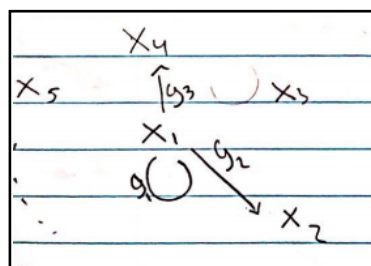 X4
X5 g3 X3
X1
g1 g2
X2